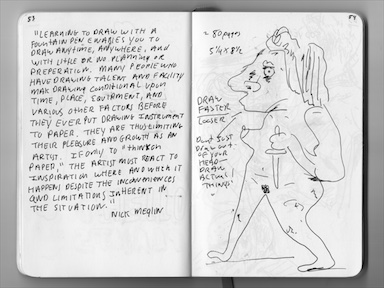 53
"LEARNING TO DRAW WITH A
FOUNTAIN PEN ENABLES YOU TO
DRAW ANYTIME, ANYWHERE, AND
WITH LITTLE OR NO PLANNING OR
PREPERATION. MANY PEOPLE WHO
HAVE DRAWING TALENT AND FACILITY
MAKE DRAWING CONDITIONAL UPON
TIME, PLACE, EQUIPMENT, AND
VARIOUS OTHER FACTORS BEFORE
THEY EVER PUT DRAWING INSTRUMENT
TO PAPER. THEY ARE THUS LIMITING
THEIR PLEASURE AND GROWTH AS AN
ARTIST. IF ONLY TO "THINK ON
PAPER," THE ARTIST MUST REACT TO
INSPIRATION WHERE AND WHEN IT
HAPPENS DESPITE THE INCONVENIENCES
AND LIMITATIONS INHERENT IN
THE SITUATION."
NICK MEGLIN
54
~ 80 pages
5 1/4 x 8 1/2
DRAW
FASTER
LOOSER
Don't JUST
DRAW out
OF YOUR
HEAD —
DRAW
ACTUAL
'THINGS'